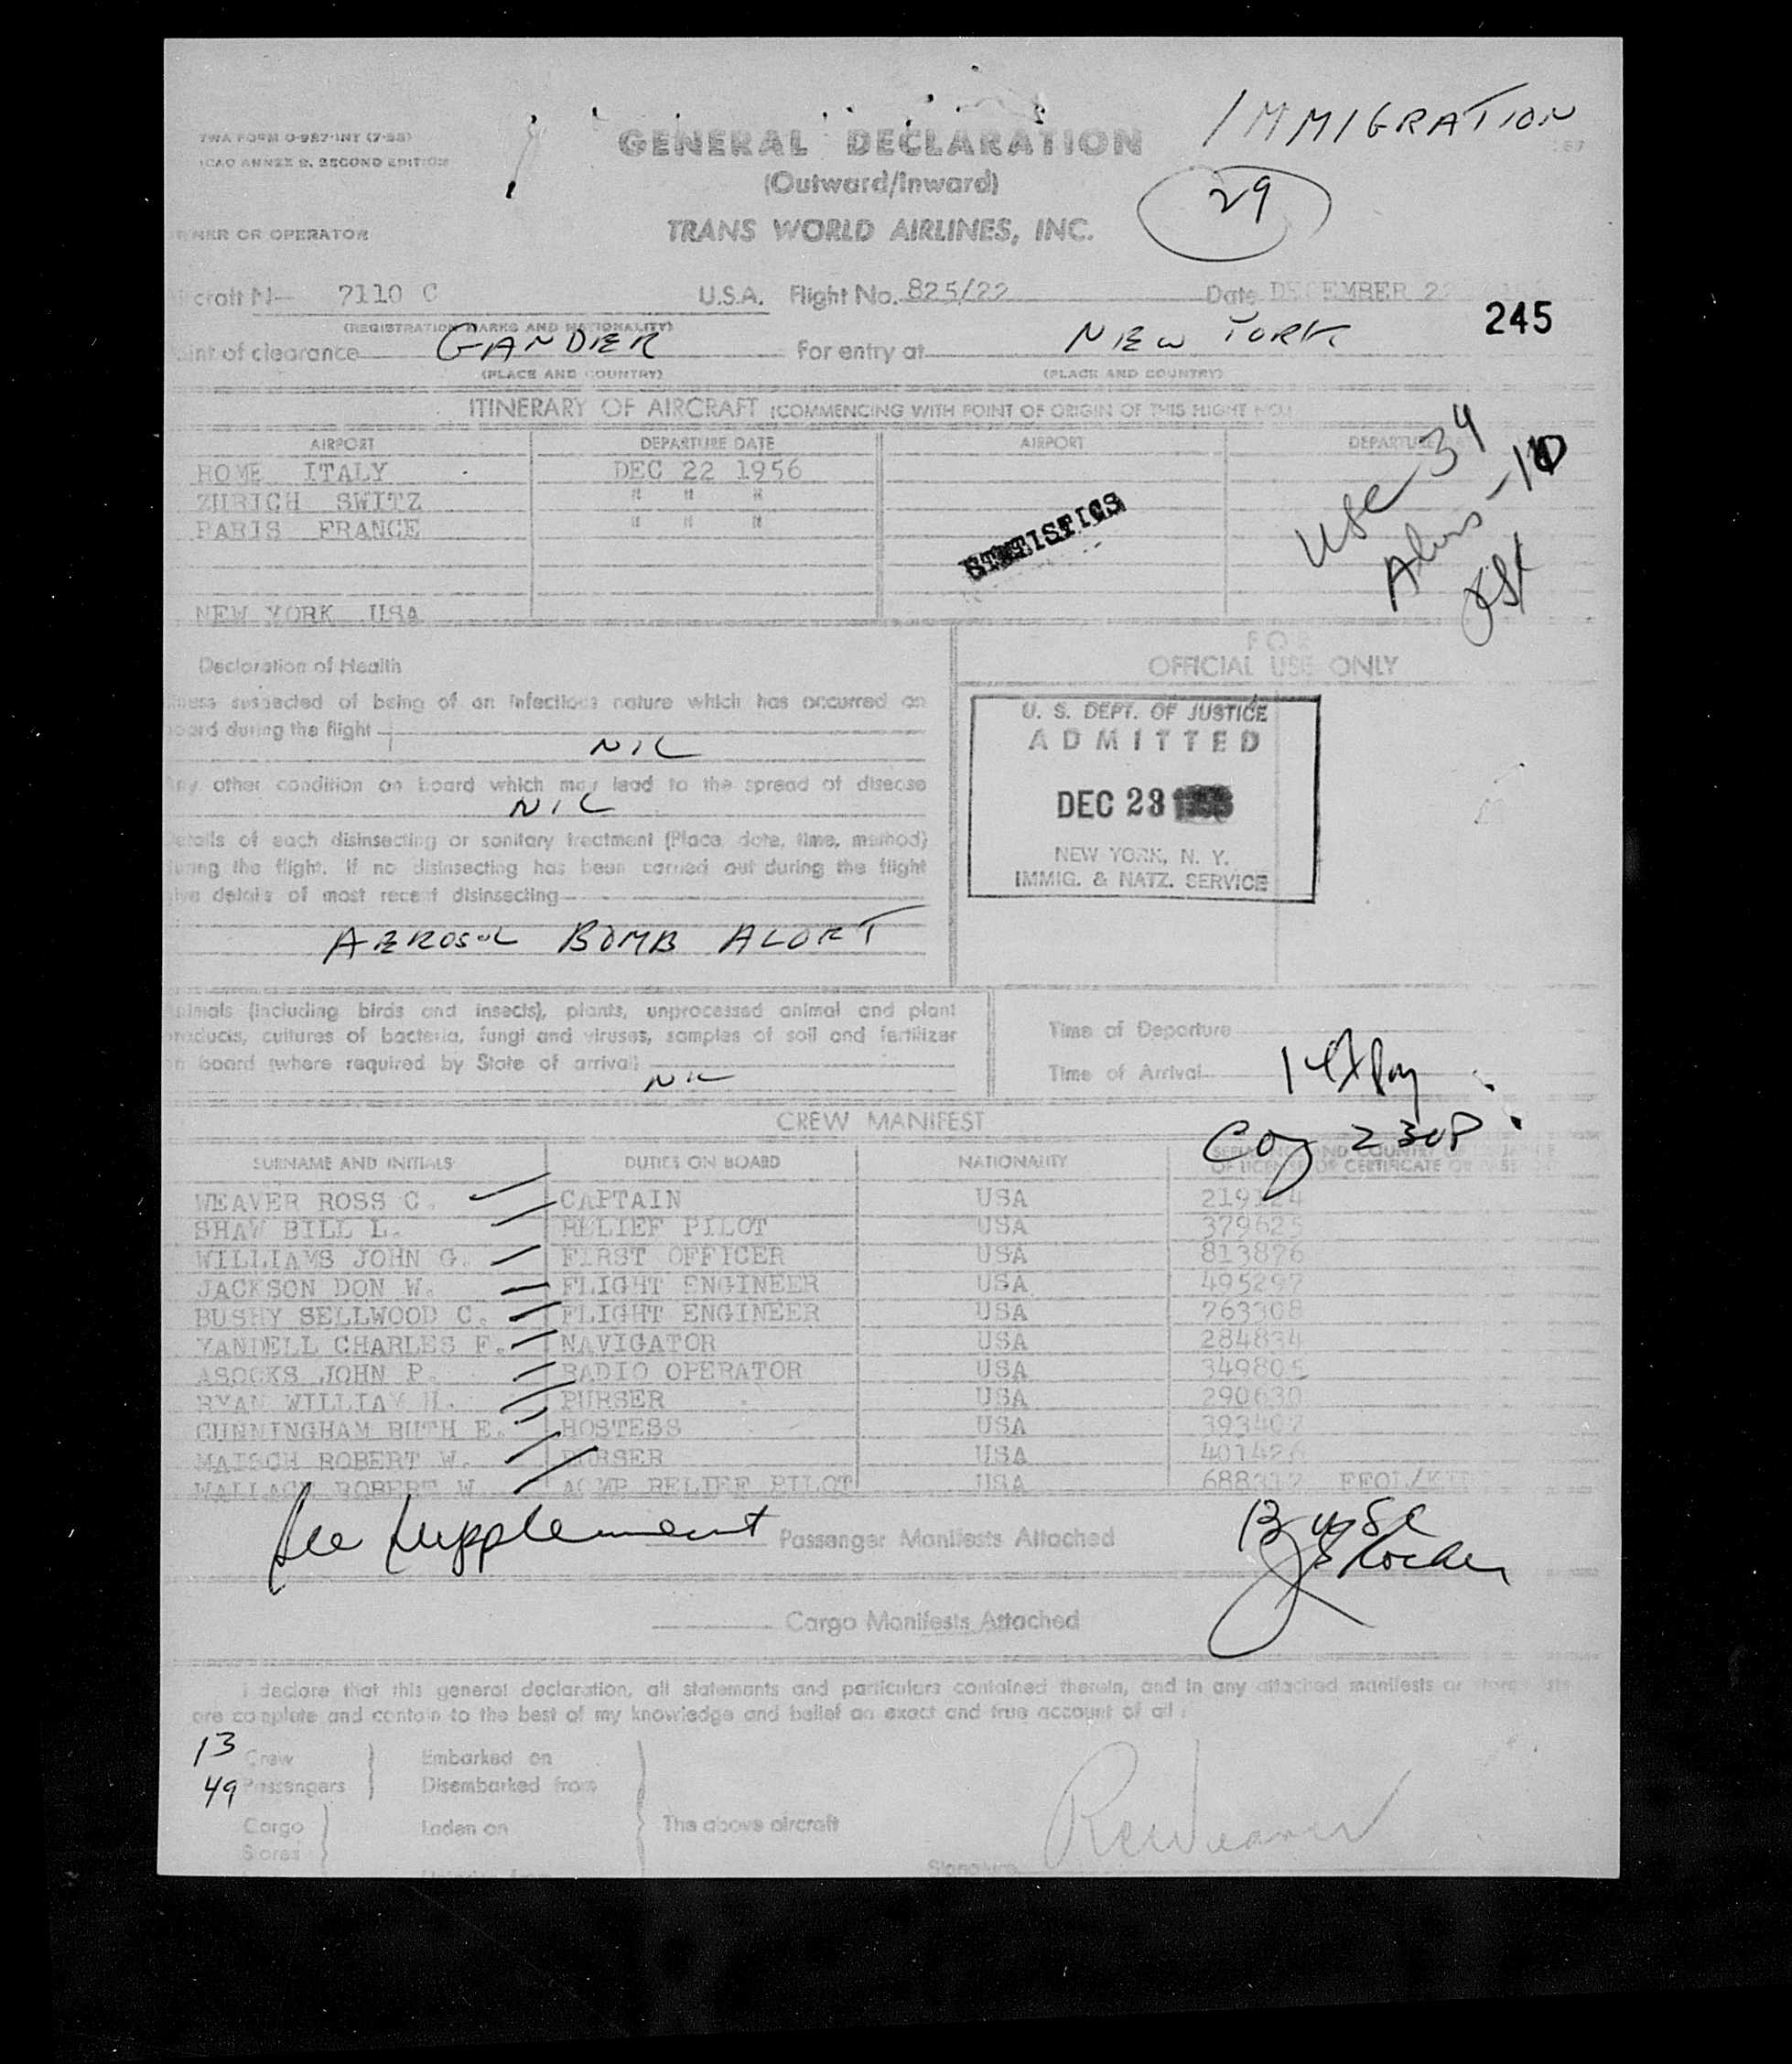 TWA FORM O-987-INT (7-55)
ICAO ANNEX 9, SECOND EDITION
GENERAL DECLARATION
IMMIGRATION
(Outward/Inward)
29
NER OR OPERATOR
TRANS WORLD AIRLINES, INC.
craft N— 7110 C U.S.A. Flight No. 825/22 Date DECEMBER 22
245
(REGISTRATION MARKS AND NATIONALITY)
int of clearance GANDER For entry at NEW YORK
(PLACE AND COUNTRY) (PLACE AND COUNTRY)
ITINERARY OF AIRCRAFT (COMMENCING WITH POINT OF ORIGIN OF THIS FLIGHT NO.)
AIRPORT DEPARTURE DATE AIRPORT DEPARTURE
ROME ITALY DEC 22 1956
ZURICH SWITZ " " "
PARIS FRANCE " " "
NEW YORK USA
STATISTICS
USC-34
Aliens -10
Declaration of Health
FOR
OFFICIAL USE ONLY
lness suspected of being of an infectious nature which has occurred on
board during the flight
NIL
Any other condition on board which may lead to the spread of disease
NIL
Details of each disinsecting or sanitary treatment (Place, date, time, method)
during the flight. If no disinsecting has been carried out during the flight
give details of most recent disinsecting
AEROSOL BOMB ALOFT
U. S. DEPT. OF JUSTICE
ADMITTED
DEC 23
NEW YORK, N. Y.
IMMIG. & NATZ. SERVICE
nimals (including birds and insects), plants, unprocessed animal and plant
products, cultures of bacteria, fungi and viruses, samples of soil and fertilizer
on board (where required by State of arrival)
NIL
Time of Departure
Time of Arrival
230P
CREW MANIFEST
SURNAME AND INITIALS DUTIES ON BOARD NATIONALITY
OF LICENSE OR CERTIFICATE
WEAVER ROSS C. CAPTAIN USA 219124
SHAW BILL L. RELIEF PILOT USA 379625
WILLIAMS JOHN G. FIRST OFFICER USA 813876
JACKSON DON W. FLIGHT ENGINEER USA 495297
BUSHY SELLWOOD C. FLIGHT ENGINEER USA 763308
YANDELL CHARLES F. NAVIGATOR USA 284834
ASOCKS JOHN P. RADIO OPERATOR USA 349805
RYAN WILLIAM H. PURSER USA 290630
CUNNINGHAM RUTH E. HOSTESS USA 393407
MAISCH ROBERT W. PURSER USA 401426
WALLACE ROBERT W. ACMP RELIEF PILOT USA 688312
See Supplement Passenger Manifests Attached
13 USC
Cargo Manifests Attached
I declare that this general declaration, all statements and particulars contained therein, and in any attached manifests or
are complete and contain to the best of my knowledge and belief an exact and true account of all
13 Crew Embarked on
49 Passengers Disembarked from
Cargo Laden on The above aircraft
Stores
Signature RCWeaver